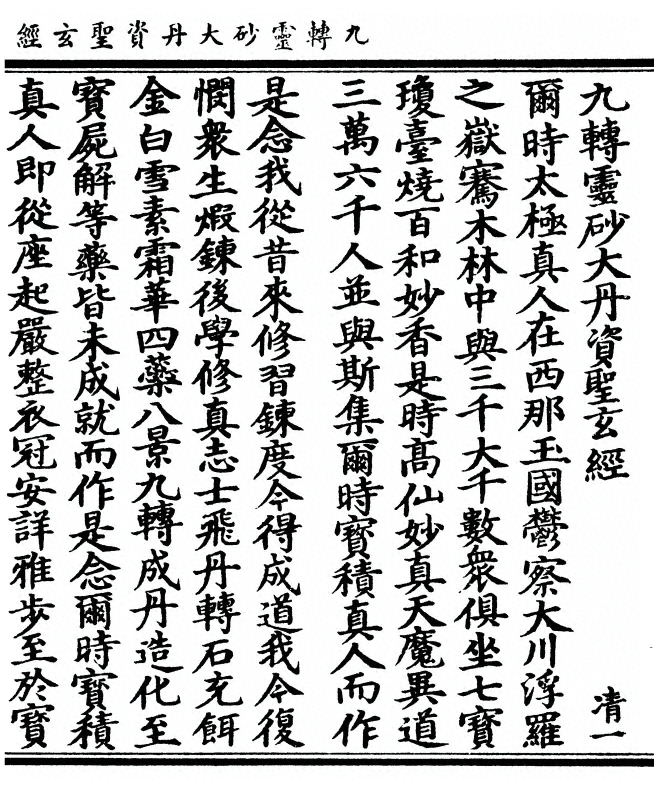 九轉靈砂大丹資聖玄經
九轉靈砂大丹資聖玄經 凊一
爾時太極真人在西那玉國鬱察大川浮羅
之嶽騫木林中與三千大千數衆俱坐七寶
瓊臺燒百和妙香是時高仙妙真天魔異道
三萬六千人並與斯集爾時寶積真人而作
是念我從昔來修習鍊度今得成道我今復
憫衆生煅鍊後學修真志士飛丹轉石充餌
金白雪素霜華四藥八景九轉成丹造化至
寶屍解等藥皆未成就而作是念爾時寶積
真人即從座起嚴整衣冠安詳雅步至於寶